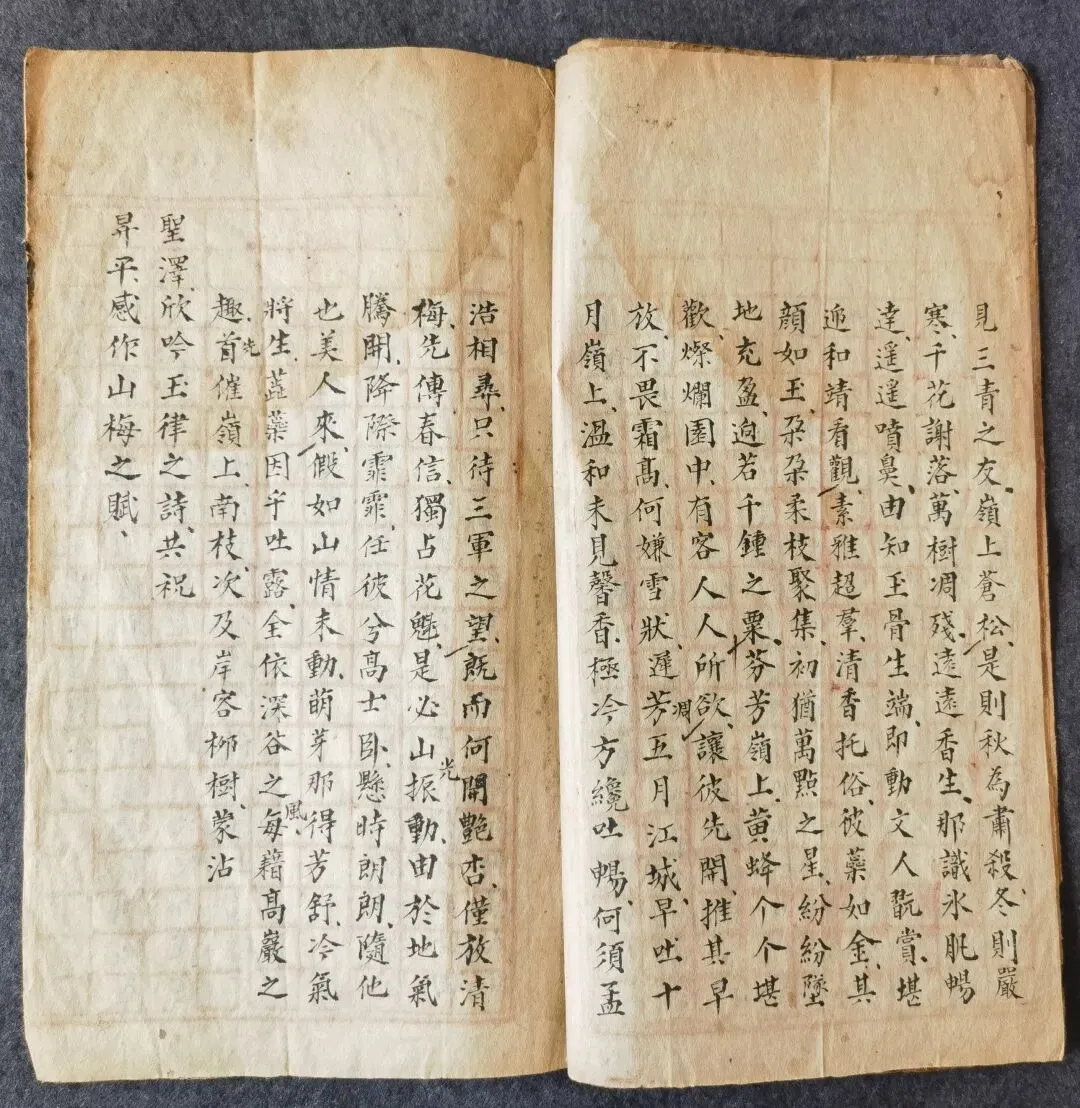 見三青之友、嶺上蒼松、是則秋為肅殺、冬則嚴
寒、千花謝落、萬樹凋殘、遠遠香生、那識氷肌暢
達、遥遥噴鼻、由知玉骨生端、即動文人翫賞、堪
追和靖看觀、素雅超羣、清香托俗、彼蘂如金、其
顔如玉、朶朶柔枝聚集、初猶萬點之星、紛紛墜
地充盈、逈若千鍾之粟、芬芳嶺上、黄蜂个个堪
歡、燦爛園中、有客人人所欲、讓彼先開、推其早
放、不畏霜高、何嫌雪狀、遲芳凋五月江城、早吐十
月嶺上、温和未見馨香、極冷方纔吐暢、何須孟
浩相尋、只待三軍之望、既而何開艷杏、僅放清
梅、先傳春信、獨占花魁、是必山光振動、由於地氣
騰開、降際霏霏、任彼兮高士卧、懸時朗朗、隨他
也美人來、假如山情未動、萌芽那得芳舒、冷氣
將生、蕋蘂因乎吐露、全依深谷之風、每藉高巖之
趣、首先催嶺上、南枝、次及岸容柳樹、蒙沾
聖澤、欣吟玉律之詩、共祝
昇平、感作山梅之賦、